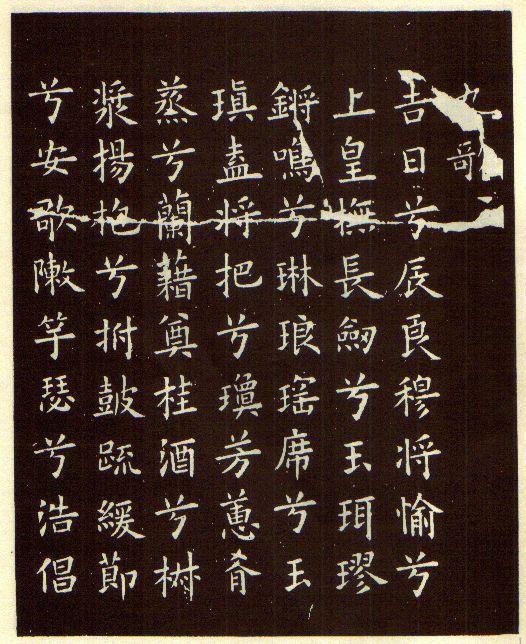 九歌
吉日兮辰良穆将愉兮
上皇撫長劔兮玉珥璆
鏘鳴兮琳琅瑤席兮玉
瑱盍将把兮瓊芳蕙肴
蒸兮蘭藉奠桂酒兮椒
漿揚枹兮拊鼓疏緩節
兮安歌陳竽瑟兮浩倡